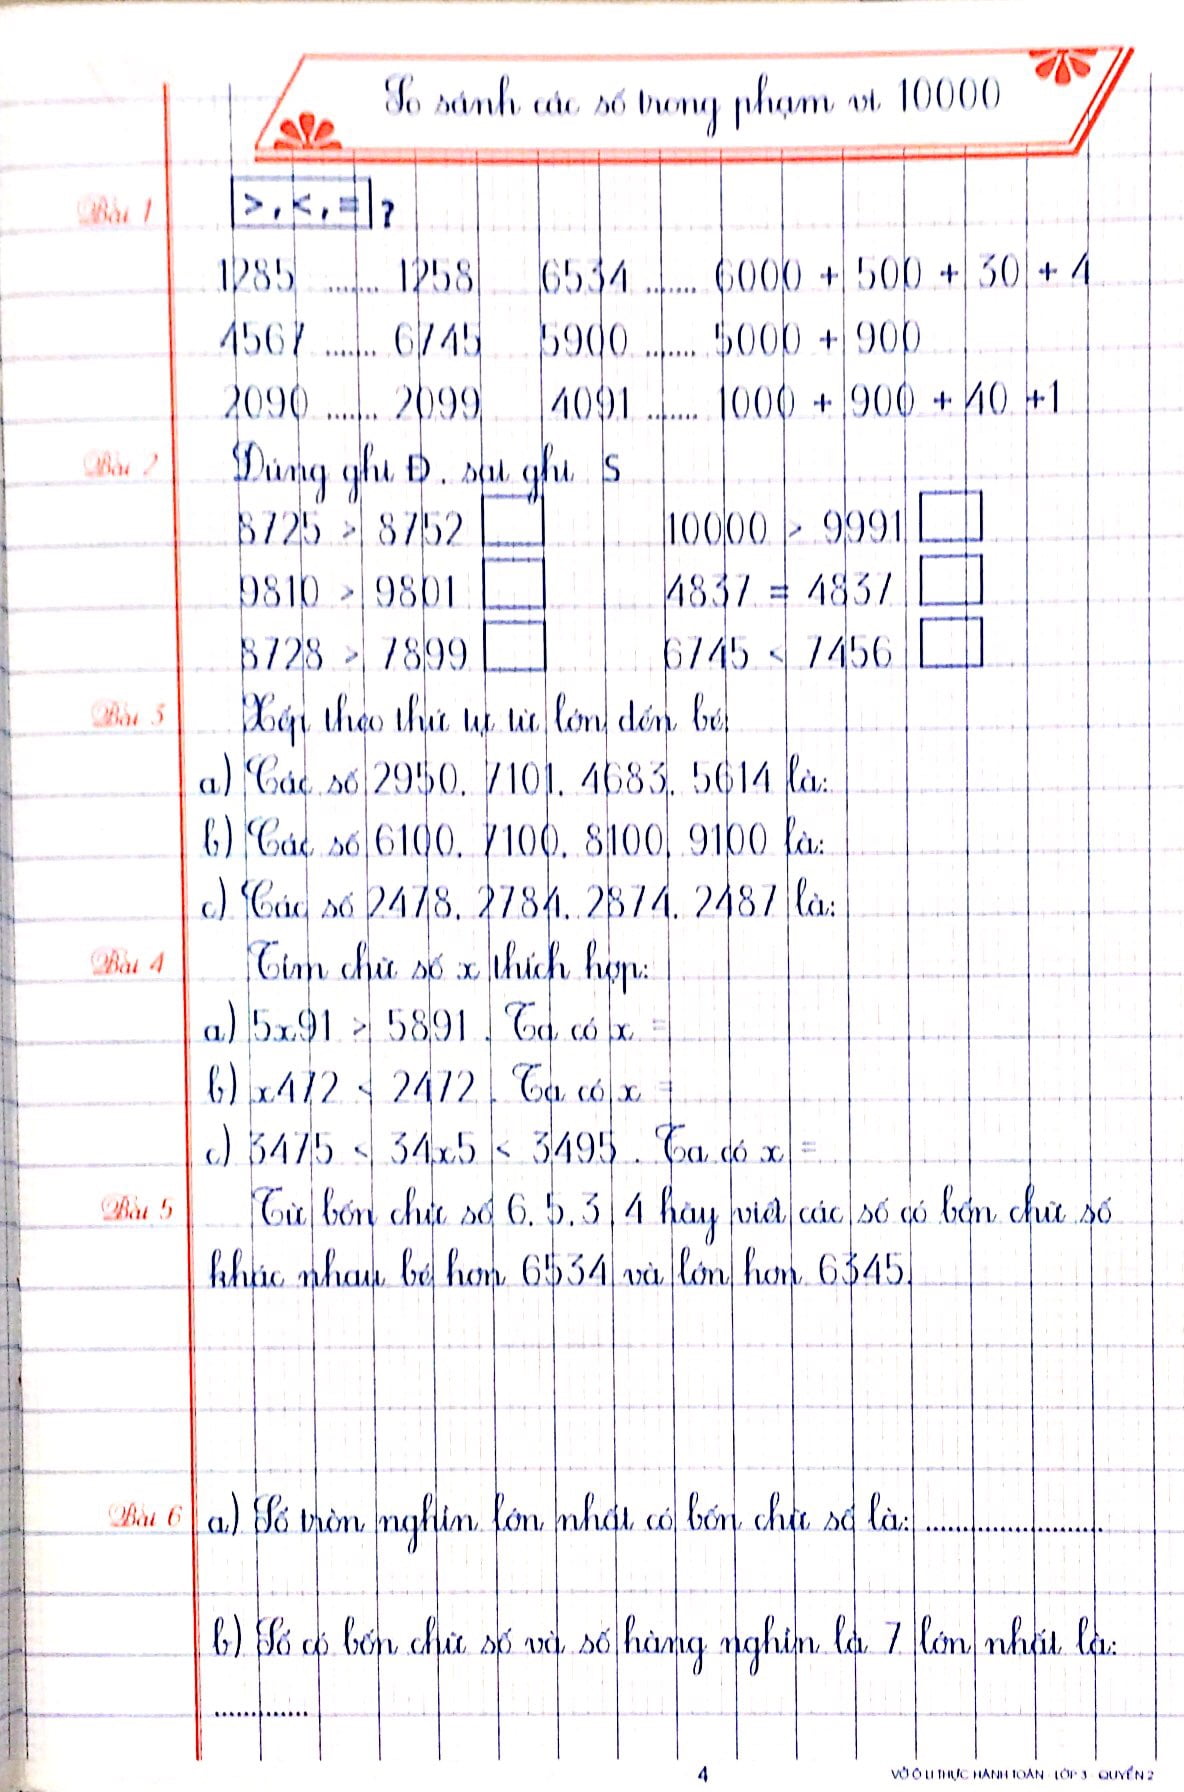 So sánh các số trong phạm vi 10000
Bài 1
>, <, = ?
1285 ....... 1258 6534 ....... 6000 + 500 + 30 + 4
4567 ....... 6745 5900 ....... 5000 + 900
2090 ....... 2099 4091 ....... 1000 + 900 + 40 +1
Bài 2 Đúng ghi Đ, sai ghi S
8725 > 8752 10000 > 9991
9810 > 9801 4837 = 4837
8728 > 7899 6745 < 7456
Bài 3 Xếp theo thứ tự từ lớn đến bé:
a) Các số 2950, 7101, 4683, 5614 là:
b) Các số 6100, 7100, 8100, 9100 là:
c) Các số 2478, 2784, 2874, 2487 là:
Bài 4 Tìm chữ số x thích hợp:
a) 5x91 > 5891 . Ta có x =
b) x472 < 2472 . Ta có x =
c) 3475 < 34x5 < 3495 . Ta có x =
Bài 5 Từ bốn chữ số 6, 5, 3, 4 hãy viết các số có bốn chữ số
khác nhau bé hơn 6534 và lớn hơn 6345.
Bài 6 a) Số tròn nghìn lớn nhất có bốn chữ số là: ........................
b) Số có bốn chữ số và số hàng nghìn là 7 lớn nhất là:
.............
4 VỞ Ô LI THỰC HÀNH TOÁN - LỚP 3 - QUYỂN 2